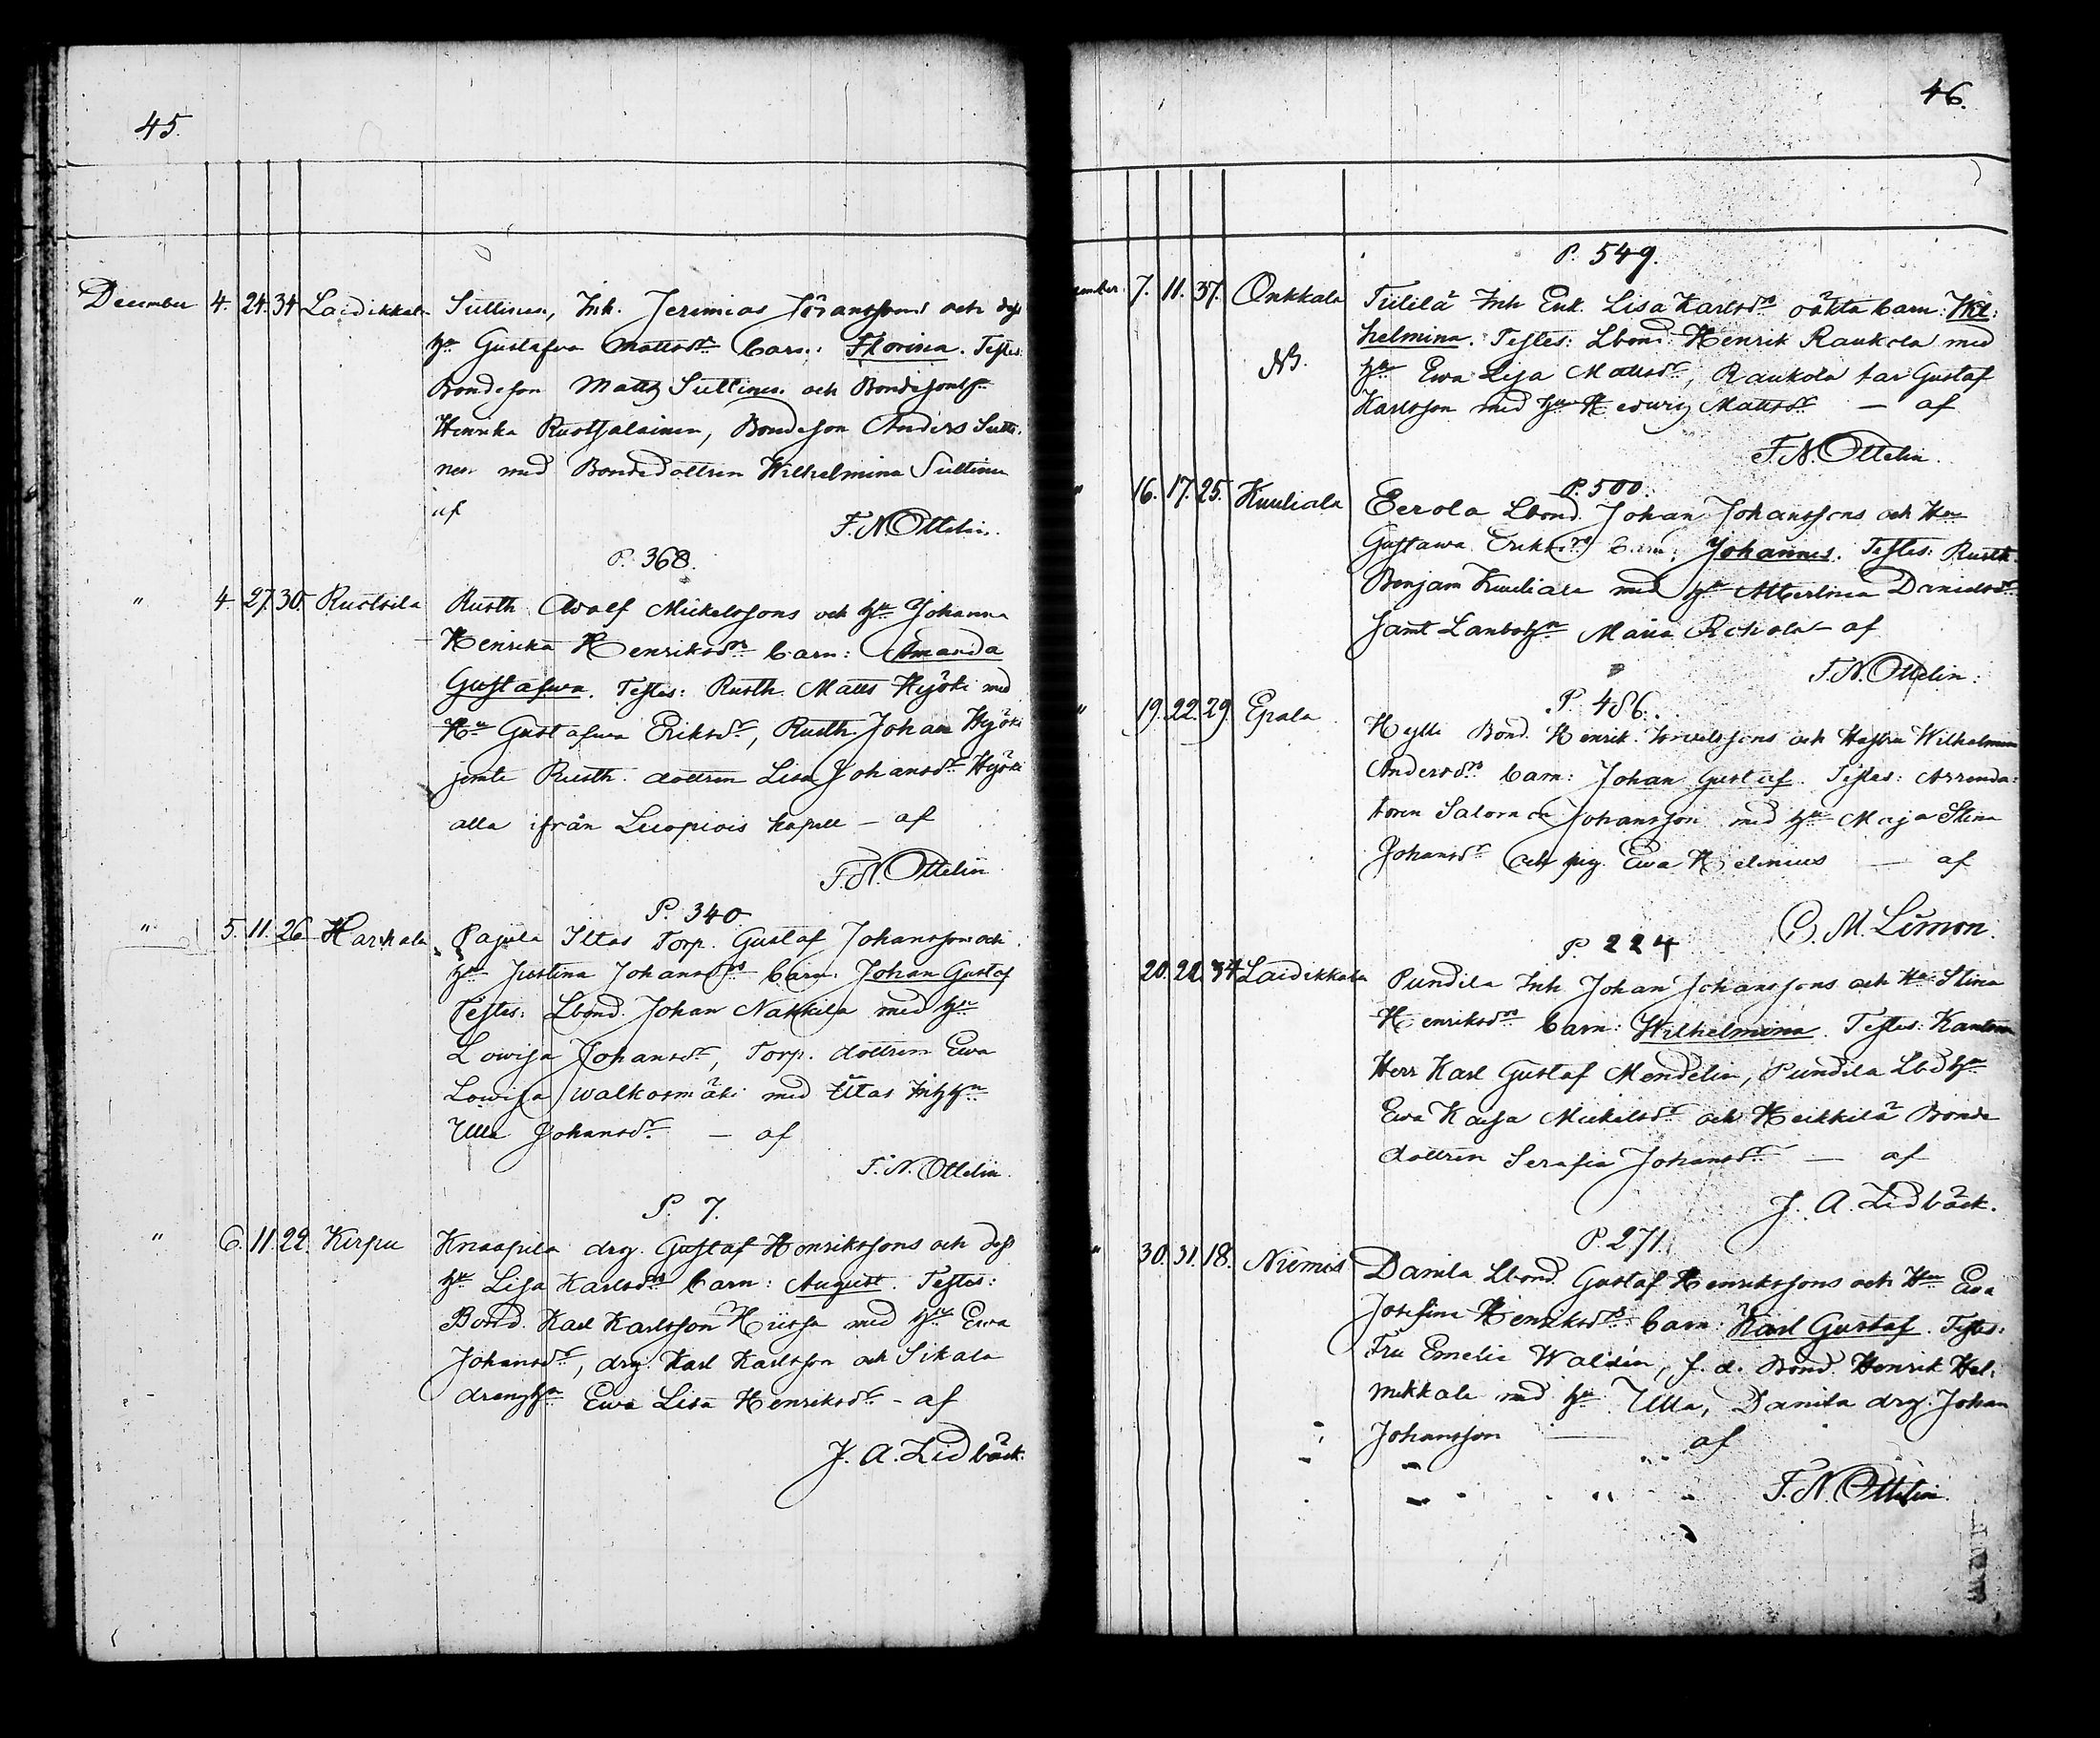 45.
December 4. 24. 34 Laidikkala Sullinen, Inh. Jeremias Göranssons och dess
hu Gustafwa Mattsdrs barn: Florina. Testes:
Bondeson Matts Sullinen och Bondesons
Henrika Rustjalainen, Bondeson Anders Sulli-
nen med Bondedottren Wilhelmina Sullinen
af
F. N. Ottelin.
P. 368.
" 4. 27. 30. Rustsila Rusth. Adolf Mickelssons och hu Johanna
Henrika Henriksdrs barn: Amanda
Gustafwa. Testes: Rusth. Matts Hyöki med
Hu Gustafwa Eriksdr, Rusth. Johan Hyöki
jemte Rusth. dottren Lisa Johansdr Hyöki
alla ifrån Luopiois kapell – af
F. N. Ottelin
P. 340
" 5. 11. 26 Harhala Pajula Iltas Torp. Gustaf Johanssons och
hu Justina Johansdrs barn: Johan Gustaf
Testes: Lbond. Johan Nakkila med hu
Lowisa Johansdr, Torp. dottren Ewa
Lowisa Walkosmäki med Iltas Inhhu
Ulla Johansdr. – af
F. N. Ottelin.
P. 7.
" 6. 11. 22. Kirpu Knaapila drg. Gustaf Henrikssons och dess
hu Lisa Karlsdrs barn: August. Testes:
Bond. Karl Karlsson Hiissa med hu Ewa
Johansdr, drg. Karl Karlsson och Sikala
dränghu Ewa Lisa Henriksdr. – af
J. A. Lidbäck.
46.
P. 549.
7. 11. 37. Onkkala Tulilä Inh Enk. Lisa Karlsdrs oäkta barn: Wil-
NB. helmina. Testes: Lbond. Henrik Raukola med
hu Ewa Lisa Mattsdr, Raukola Gustaf
Karlsson med hu Hedwig Mattsdr – af
F. N. Ottelin.
P. 500.
" 16. 17. 25. Kuuliala Eerola Lbond. Johan Johanssons och Hu
Gustawa Eriksdrs barn: Johannes. Testes: Rusth.
Benjam Kuuliala med hu Albertina Danielsdr
samt Lambohu Maria Rehola – af
F. N. Ottelin.
P. 486.
" 19. 22. 29. Epala Hylli Bond. Henrik och Hustru Wilhelmina
Andersdrs barn: Johan Gustaf. Testes: Arrenda-
toren Salomon Johansson med hu Maja Stina
Johansdr och pig. Ewa Helenius – af
C. M. Limon.
P. 224
20. 22. 34 Laidikkala Pundila Inh. Johan Johanssons och Hu Stina
Henriksdrs barn: Wilhelmina. Testes: Kantorn
Herr Karl Gustaf Mendelin, Pundila Lbdhu
Ewa Kaisa Mickelsdr och Heikkilä Bonde
dottren Serafia Johansdr – af
J. A. Lidbäck.
P. 271.
" 30. 31. 18. Niemis Danila Lbond. Gustaf Henrikssons och Hu Ewa
Josefina Henriksdrs barn: Karl Gustaf. Testes:
Fru Emelie Waldén, f. d. Bond. Henrik Hel-
mikkala med hu Ulla, Danila drg. Johan
Johansson – af
F. N. Ottelin.